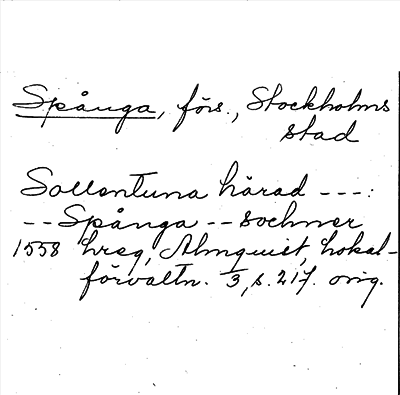 Spånga, förs., Stockholms
stad
Sollentuna härad ---:
-- Spånga -- sochner
1558 hreg, Almquist, Lokal-
förvaltn. 1/3, s. 217. orig.